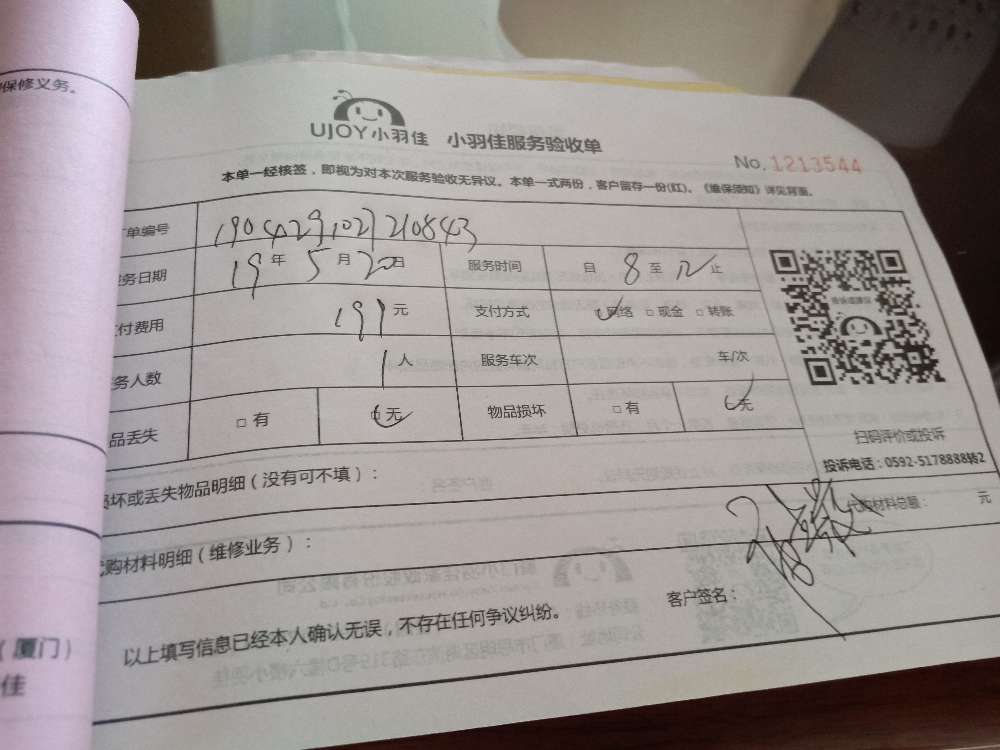 保修义务。
UJOY小羽佳 小羽佳服务验收单
No. 1213544
本单一经核签，即视为对本次服务验收无异议。本单一式两份，客户留存一份(红)。《维保须知》详见背面。
单编号 190429102210843
务日期 19年5月20日 服务时间 自8至12止
付费用 199元 支付方式 网络 □现金 □转账
务人数 1人 服务车次 车/次
品丢失 □有 无 物品损坏 □有 无
扫码评价或投诉
投诉电话：0592-5178888转2
损坏或丢失物品明细（没有可不填）：
代购材料总额： 元
代购材料明细（维修业务）：
客户签名：
以上填写信息已经本人确认无误，不存在任何争议纠纷。
（厦门）
佳